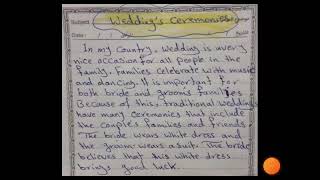 Subject
Wedding's Ceremonies
Date: / /
In my Country, wedding is a very
nice occasion for all people in the
family. Families celebrate with music
and dancing. It is important for
both bride and groom's families
Because of this, traditional weddings
have many ceremonies that include
the couple's families and friends.
The bride wears white dress and
the groom wears a suit. The bride
believes that this white dress
brings good luck.